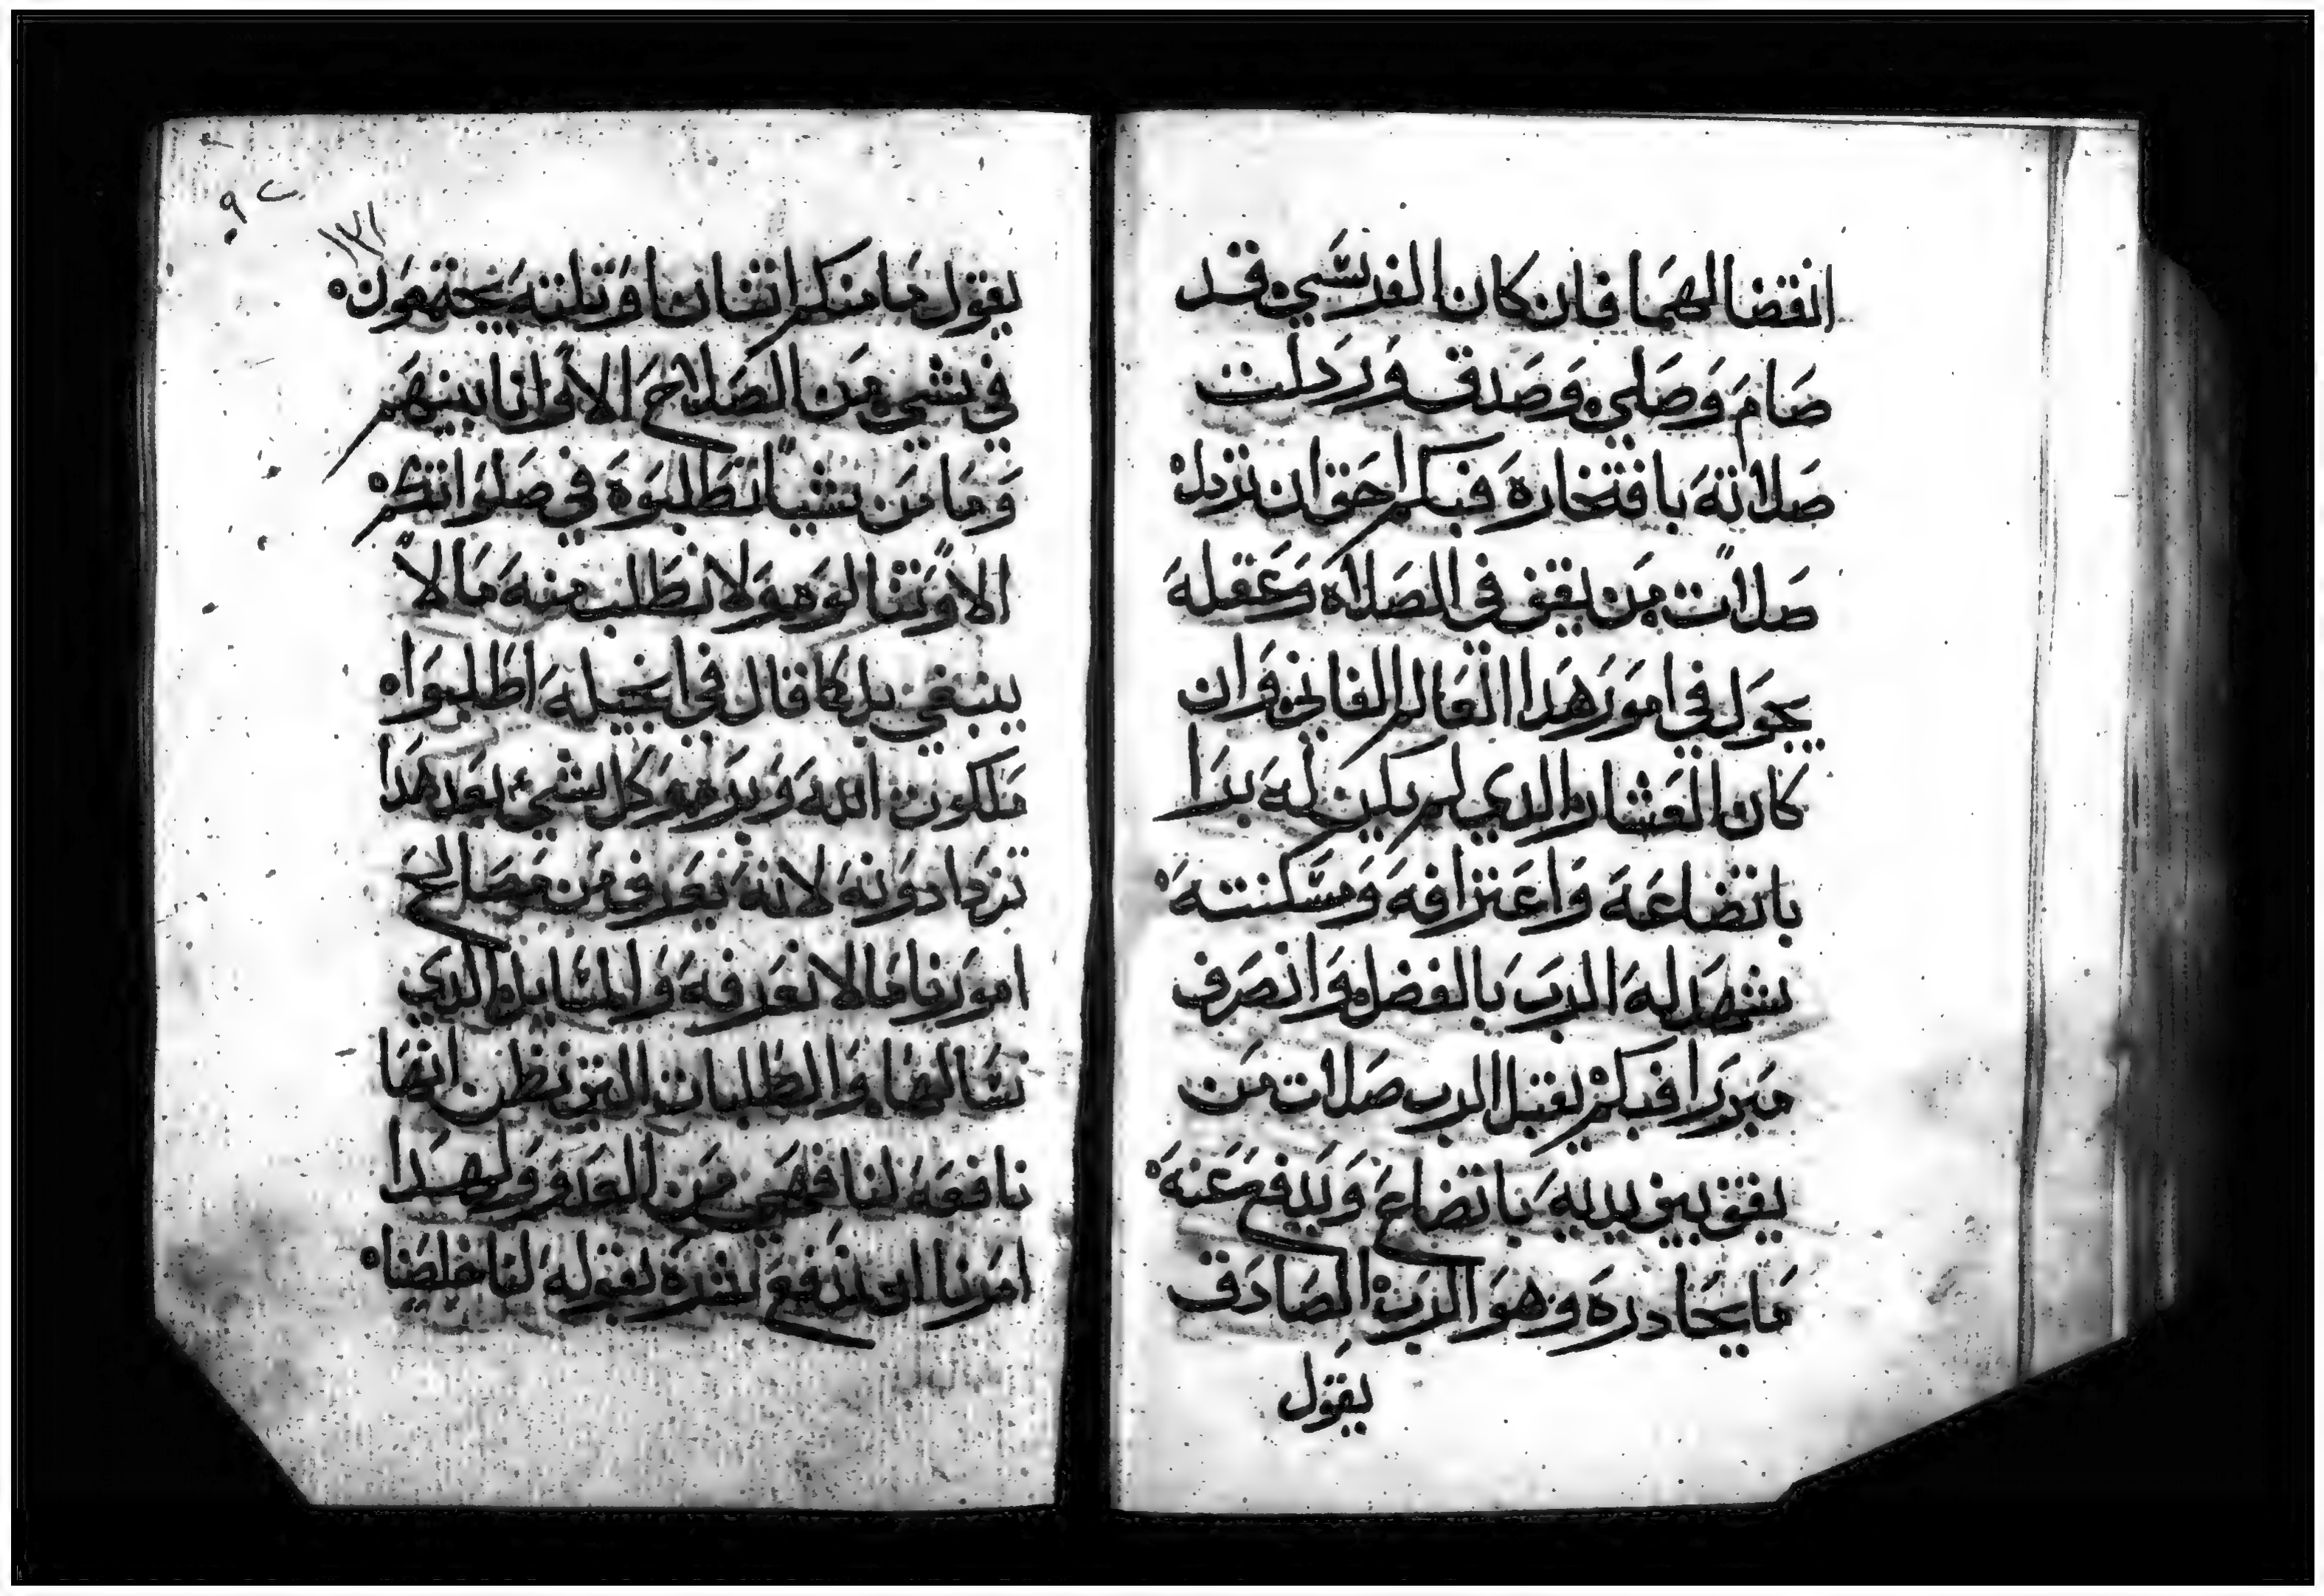 انقضا لهما فان كان الفريسي قد
صام وصلي وصدق وردلت
صلاته بافتخاره فبكم احق ان تردل
صلات من يقف في الصلاة وعقله
يجول في امور هدا العالم الفاني وان
كان العشار الدي لم يكن له بدا
باتضاعه واعترافه ومسكنته
شهد له الرب بالفضل وانصرف
مبررا فبكم يقبل الرب صلات من
يقف بين يديه باتضاع ويدفع عنه
ما يحادره وهو الرب الصادق
يقول
٩٢
١٢١
يقول ما منكم اتنان او تلته يجتمعون
في شي من الصلاح الا وانا بينهم
وما من شيا تطلبوه في صلواتكم
الا وتنالوه ولا نطلب منه مالا
ينبغي بل كما قال في انجيله اطلبوا
ملكوت الله وبره وكل شي بعد هدا
تزدادونه لانه يعرف من مصالح
امورنا مالا نعرفه والمسايل الدي
نسالها والطلبات التي نظن انها
نافعه لنا فهي من العدو ولهدا
امرنا ان ندفع شره بقوله لنا خلصنا